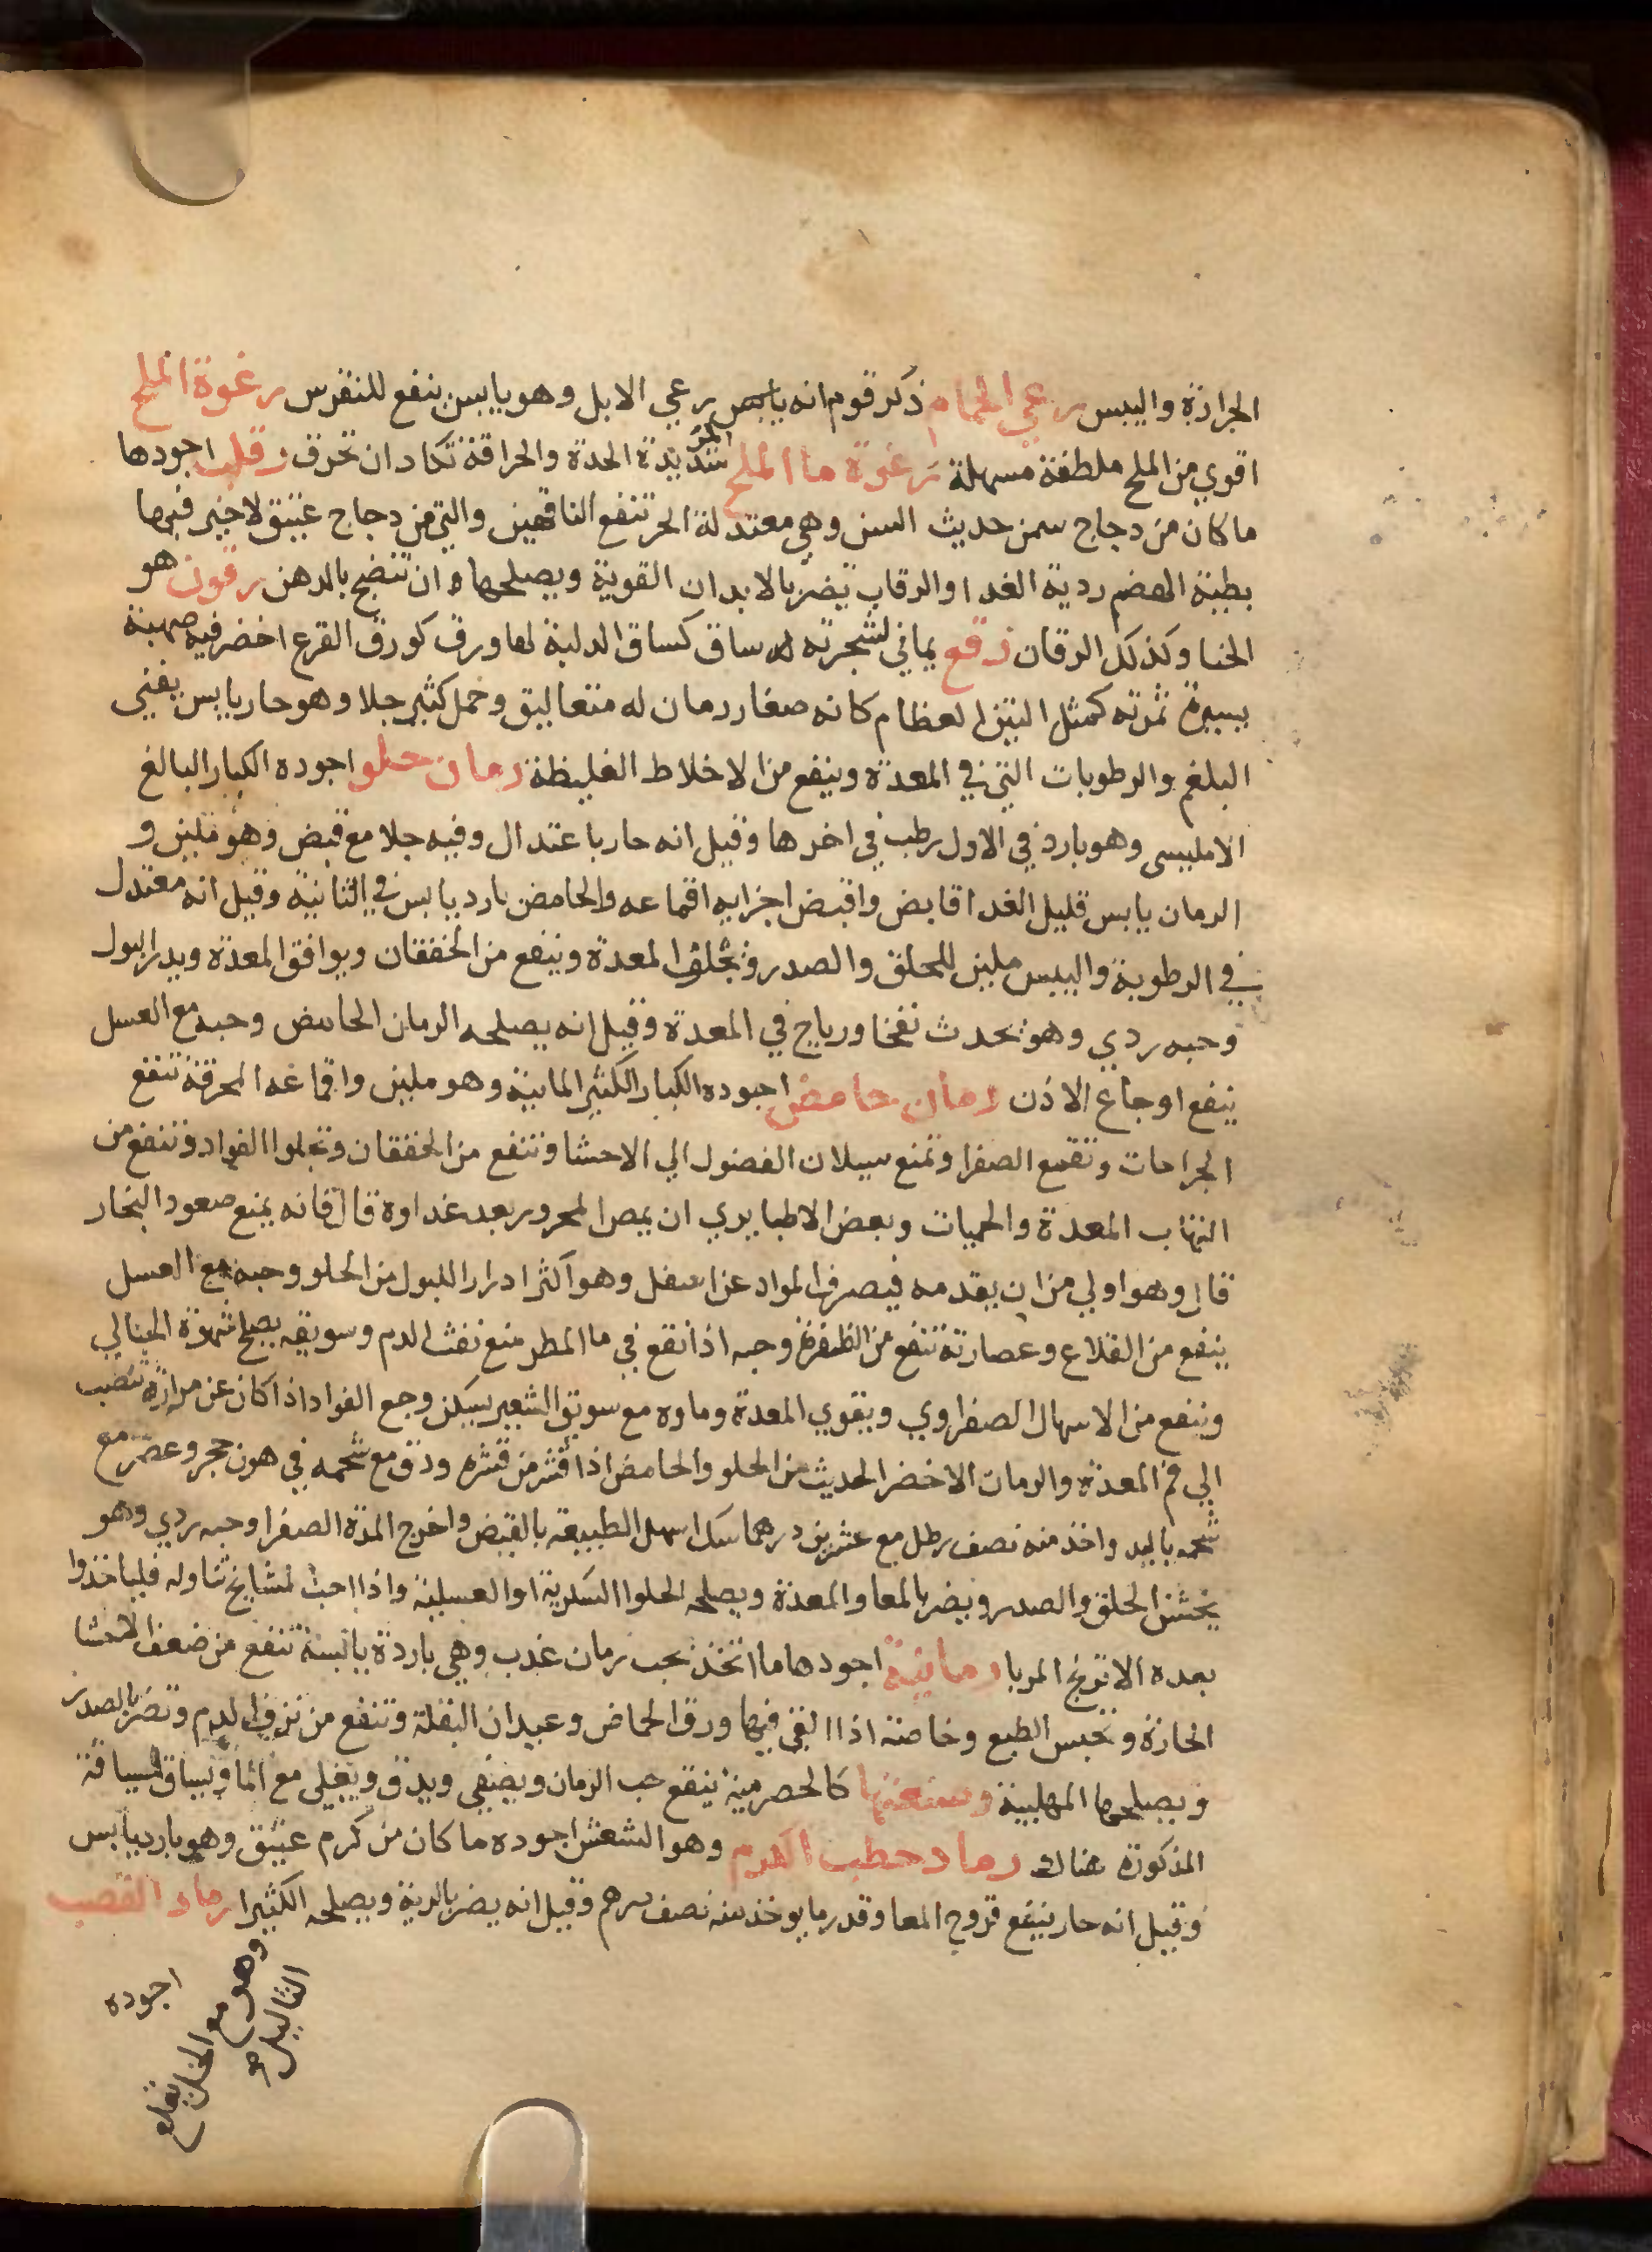 الحرارة واليبس رعي الحمام ذكر قوم انه يابس رعي الابل وهو يابس ينفع للنقرس رغوة الملح
اقوي من الملح ملطفة مسهلة رغوة ما الملح المر شديدة الحدة والحراقة تكاد ان تحرق رقاب اجودها
ما كان من دجاج سمن حديث السن وهي معتدلة الحر تنفع الناقهين والتي من دجاج عتيق لا خير فيها
بطية الهضم ردية الغدا والرقاب تضر بالابدان القوية ويصلحها ان تنضج بالدهن رقون هو
الحنا وكذلك الرقان رقع يماني لشجرته ساق كساق الدلبة لها ورق كورق القرع اخضر فيه صهبة
يسيرة ثمرته كمثل التين العظام كانه صغار رمان له متعاليق وحمل كثير جلا وهو حار يابس يفني
البلغم والرطوبات التي في المعدة وينفع من الاخلاط الغليظة رمان حلو اجوده الكبار البالغ
الامليسي وهو بارد في الاول رطب في اخرها وقيل انه حار باعتدال وفيه جلا مع قبض وهو ملين و
الرمان يابس قليل الغدا قابض واقبض اجزايه اقماعه والحامض بارد يابس في الثانية وقيل انه معتدل
في الرطوبة واليبس ملين للحلق والصدر ويجلو المعدة وينفع من الخفقان ويوافق المعدة ويدر البول
وحبه ردي وهو يحدث نفخا ورياح في المعدة وقيل انه يصلحه الرمان الحامض وحبه مع العسل
ينفع اوجاع الاذن رمان حامض اجوده الكبار الكثير المايية وهو ملين واقماعه المحرقة تنفع
الجراحات وتقمع الصفرا وتمنع سيلان الفضول الي الاحشا وتنفع من الخفقان وتجلوا الفواد وتنفع من
التهاب المعدة والحميات وبعض الاطبا يري ان يمص المحرور بعد غداوه قال فانه يمنع صعود البخار
قال وهو اولي من ان يقدمه فيصرف المواد عن اسفل وهو اكثر ادرارا للبول من الحلو وحبه مع العسل
ينفع من القلاع وعصارته تنفع من الظفرة وحبه اذا نقع في ما المطر منع نفث الدم وسويقه يصلح شهوة الحبالي
وينفع من الاسهال الصفراوي ويقوي المعدة وماوه مع سويق الشعير يسكن وجع الفواد اذا كان عن مرارة تنصب
الي فم المعدة والرمان الاخضر الحديث من الحلو والحامض اذا قشر من قشره ودق مع شحمه في هون حجر وعصر مع
شحمه باليد واخذ منه نصف رطل مع عشرين درهما سكر اسهل الطبيعة بالقبض واخرج المدة الصفرا وحبه ردي وهو
يخشن الحلق والصدر ويضر بالمعا والمعدة ويصلحه الحلوا السكرية او العسلية واذا احب المشايخ تناوله فلياخذوا
بعده الاترنج المربا رمانية اجودها ما اتخذ بحب رمان عذب وهي باردة يابسة تنفع من ضعف الاحشا
الحارة وتحبس الطبع وخاصة اذا القي فيها ورق الحماض وعيدان البقلة وتنفع من نزف الدم وتضر بالصدر
ويصلحها المهلبية وصنعتها كالحصرمية ينقع حب الرمان ويصفي ويدق ويغلي مع الما ويساق السياقة
المذكورة هناك رماد حطب الكرم وهو الشعش اجوده ما كان من كرم عتيق وهو بارد يابس
وقيل انه حار ينفع قروح المعا وقدر ما يوخذ منه نصف درهم وقيل انه يضر بالرية ويصلحه الكثيرا رماد القصب
وهو مع الخل يقلع
الثاليل
اجوده